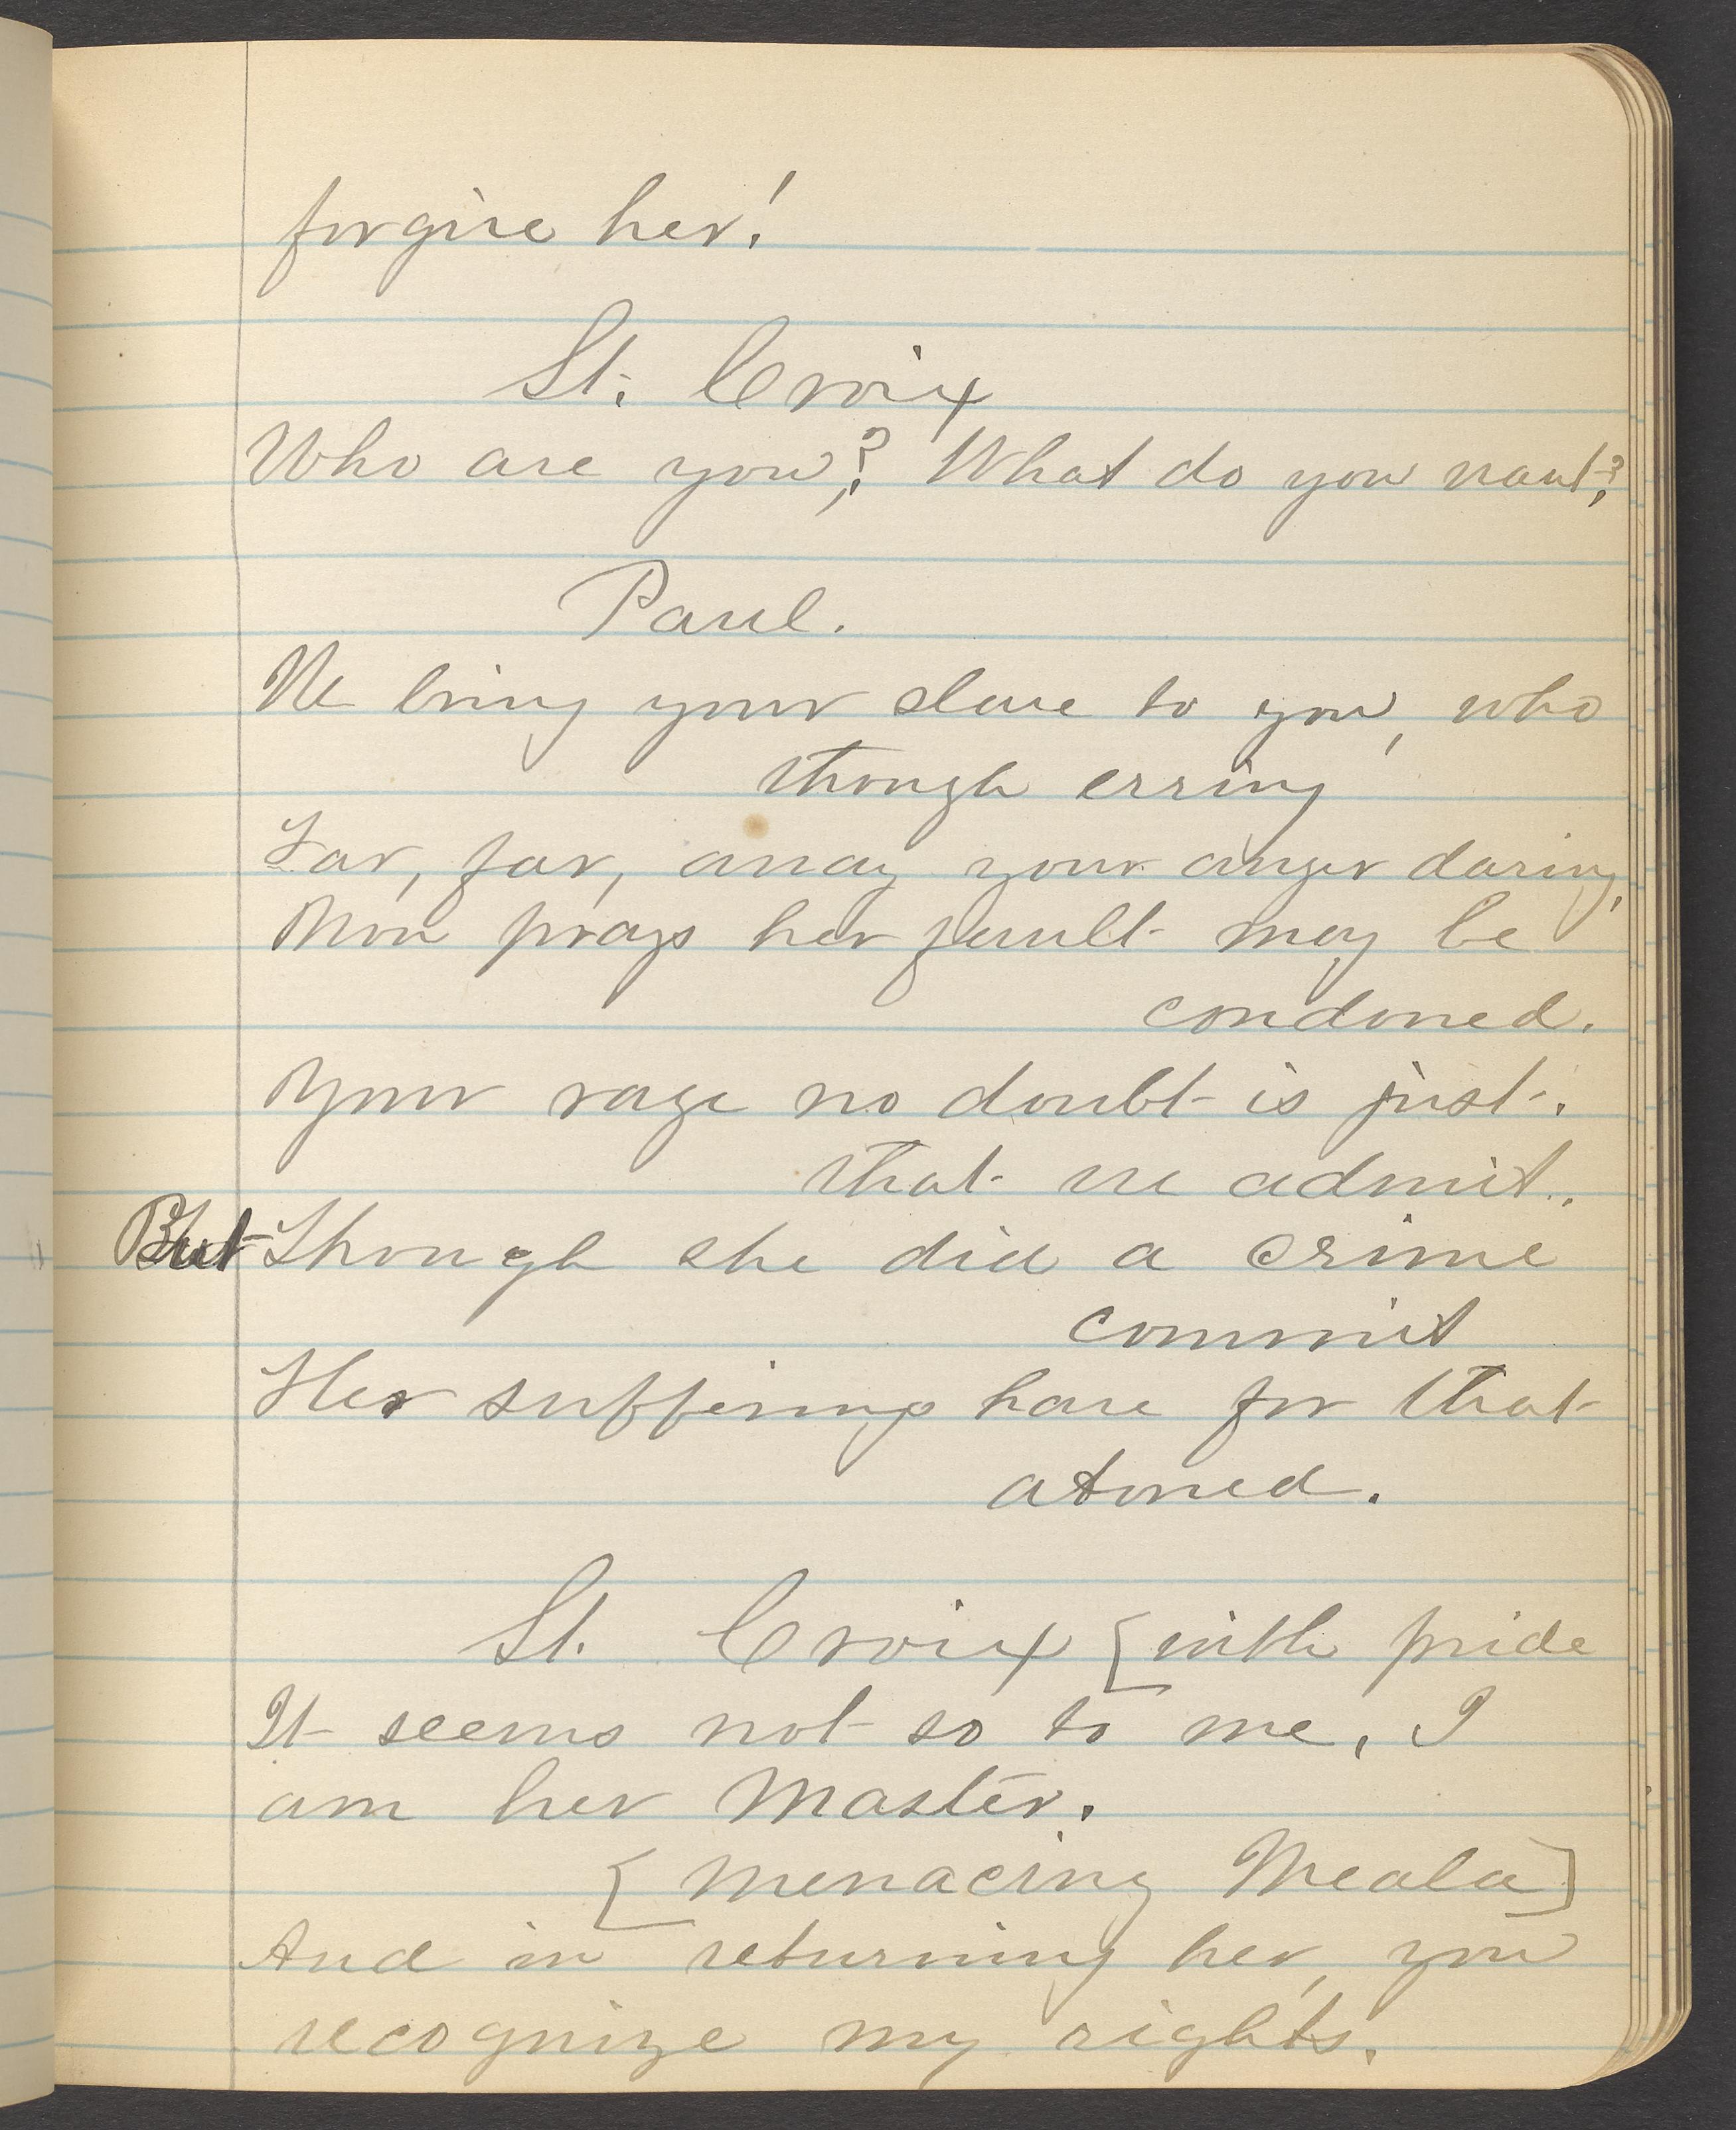 forgive her!
St. Croix
Who are you? What do you want?
Paul.
We bring your slave to you, who
though erring
Far, far, away your anger daring,
Now prays her fault may be
condoned.
Your rage no doubt is just.
that we admit.
But Though she did a crime
commit
Her sufferings have for that
atoned.
St. Croix [with pride
It seems not so to me, I
am her Master.
[Menacing Meala]
And in returning her, you
recognize my rights.